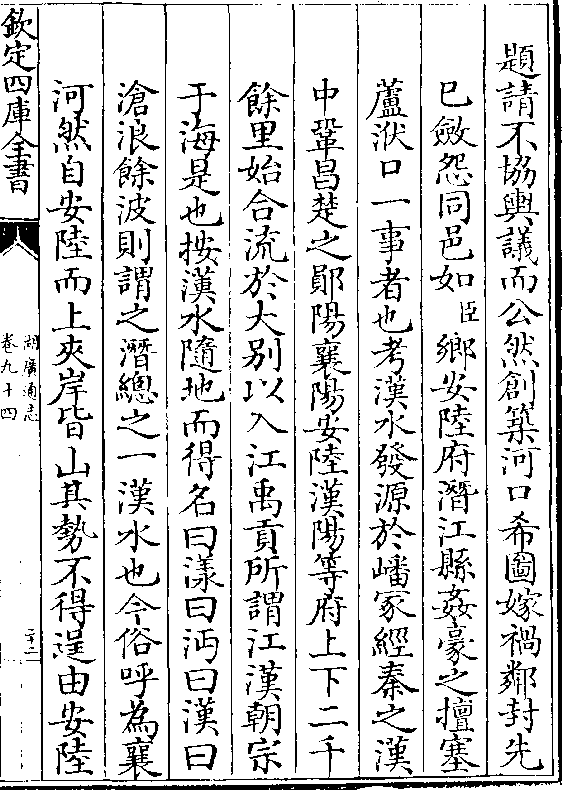 題請不協輿議而公然創築河口希圖嫁禍鄰封先
已斂怨同邑如臣鄉安陸府潛江縣姦豪之擅塞
蘆洑口一事者也考漢水發源於嶓冢經秦之漢
中鞏昌楚之鄖陽襄陽安陸漢陽等府上下二千
餘里始合流於大別以入江禹貢所謂江漢朝宗
于海是也按漢水隨地而得名曰漾曰沔曰漢曰
滄浪餘波則謂之潛總之一漢水也今俗呼為襄
河然自安陸而上夾岸皆山其勢不得逞由安陸
欽定四庫全書
湖廣通志
卷九十四
三十二